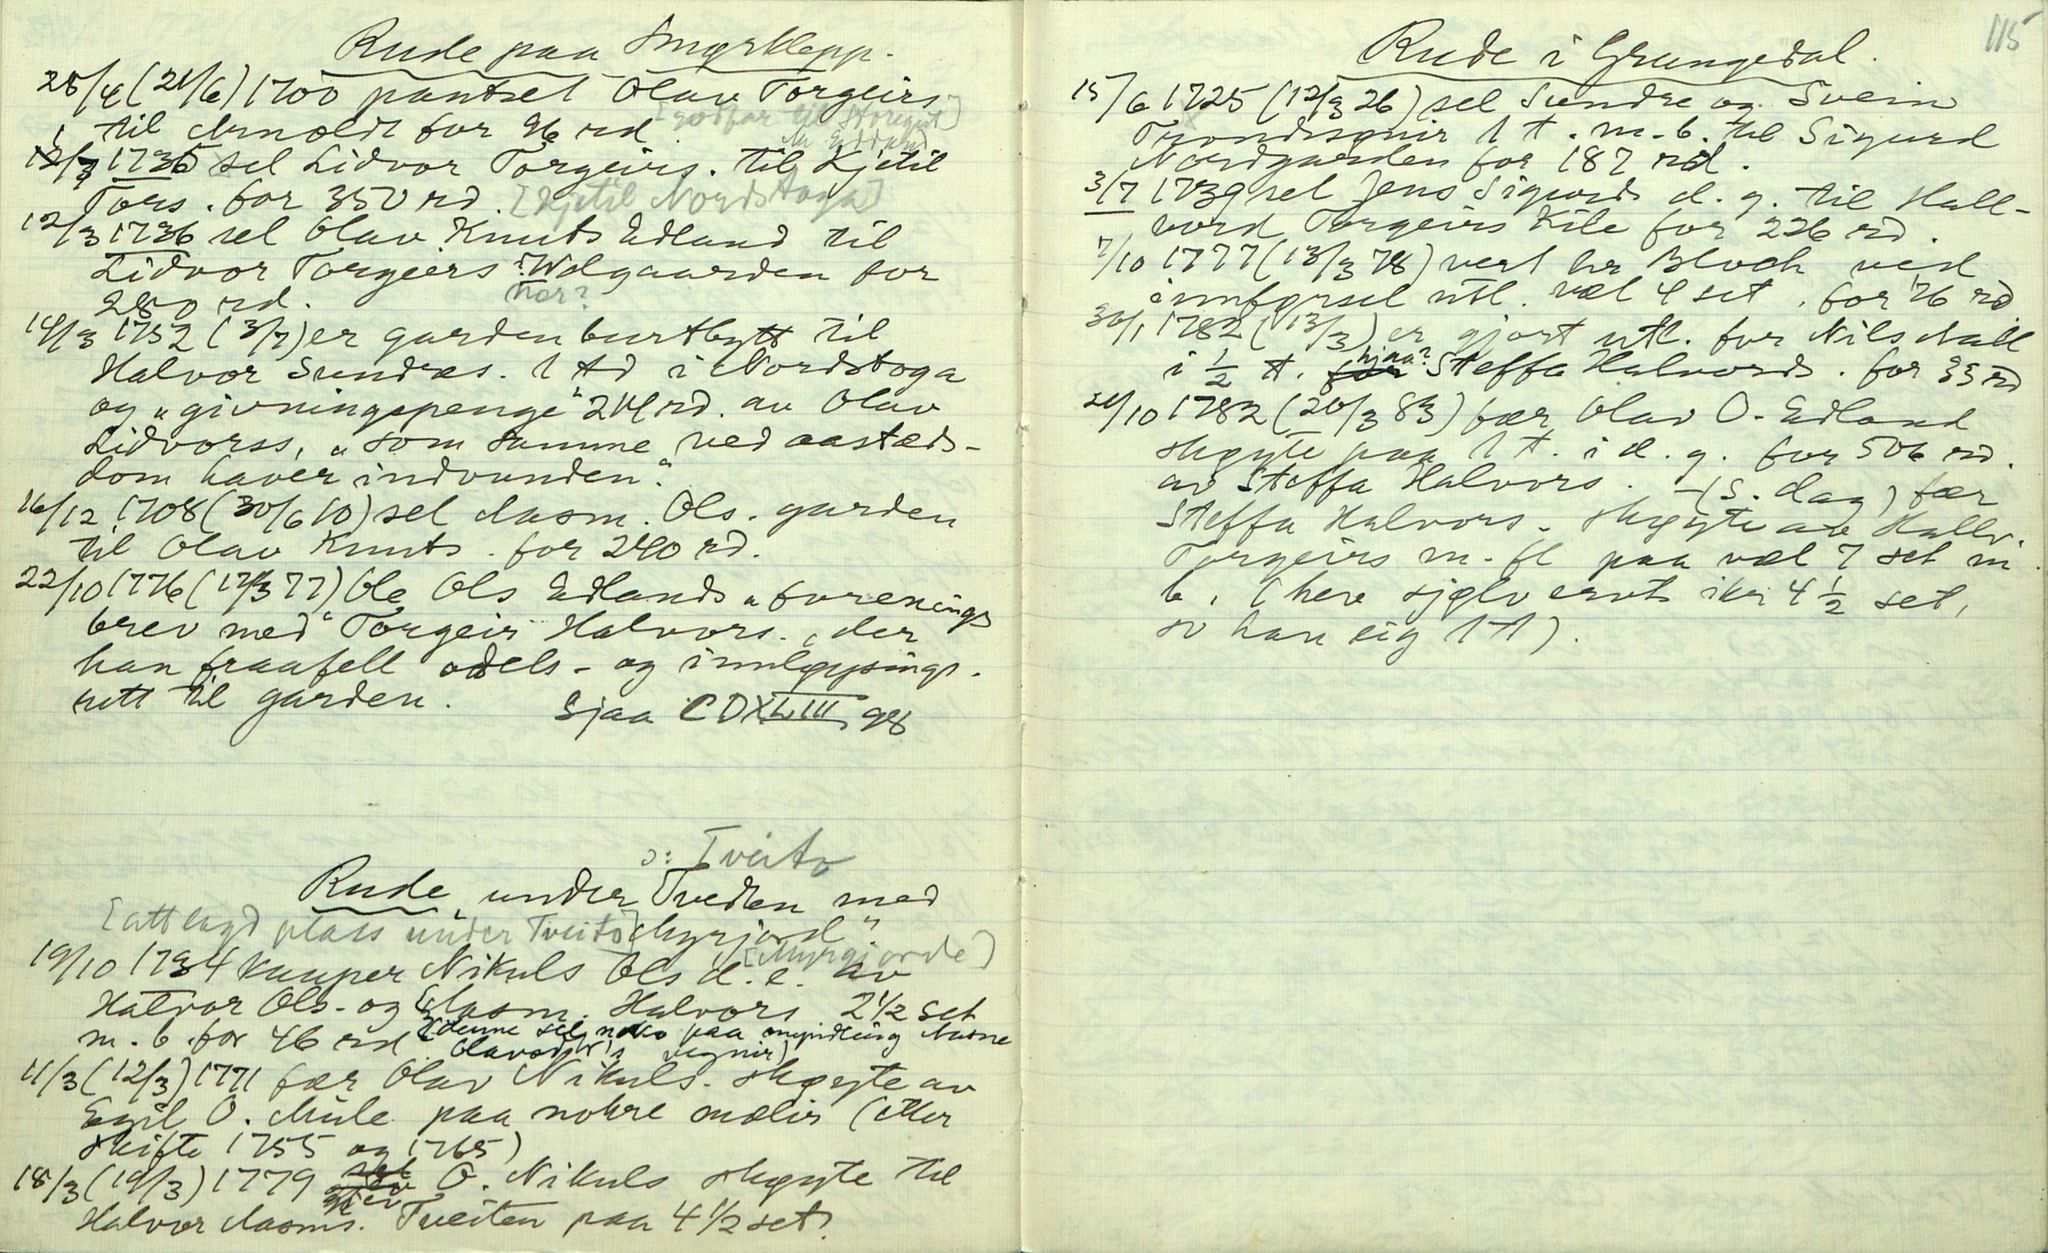 Rude paa Smørklepp.
28/4 (21/6) 1700 pantset Olav Torgeirs
til Arnoldt for 96 rd. [godfar til Storegut]
12/3 1736 sel Lidvor Torgeirs. til Kjetil
Tors. for 350 rd. [Kjetil Nordstoga]
12/3 1736 sel Olav Knuts Edland til
Lidvor Torgeirs Wdgaarden for
280 rd. nær?
14/3 1752 (3/7) er garden burtbytt til
Halvor Sundres. 1 td i Nordstoga
og "givningspenge" 24 rd. av Olav
Lidvorss, "som samme ved aastæds-
dom haver indvunden".
16/12 1708 (30/6 10) sel Aasm. Ols. garden
til Olav Knuts. for 240 rd.
22/10 1776 (17/3 77) Ole Ols Edlands "forenings
brev med" Torgeir Halvors., der
han fraafell odels- og innløysings-
rett til garden. Sjaa CDXLIII 98
ɔ: Tveito
Rude "under Tveden med
[attlagd plass under Tveito] Myrjord".
[Myrgjorde]
19/10 1734 kauper Nikuls Ols d. e. av
Halvor Ols. og Aasm. Halvors 2 1/2 set
m. b. for 46 rd (denne sel noko paa myndling Aasne
Olavsdtr's vegnir)
11/3 (12/3) 1771 fær Olav Nikuls. skøyte av
Egil O. Mule paa nokre mælir (etter
skifte 1755 og 1765)
18/3 (19/3) 1779 gjev O. Nikuls skøyte til
Halvor Aasms. Tveiten paa 4 1/2 set.
115
Rude i Grungedal.
15/6 1725 (12/3 26) sel Sundre og Svein
Trondssønir 1 t. m. b. til Sigurd
Nordgarden for 187 rd.
3/7 1739 sel Jens Sigurds d. g. til Hall-
vord Torgeirs Kile for 226 rd.
7/10 1777 (13/3 78) vert hr Bloch ved
innførsel utl. vel 4 set. for 76 rd
30/1 1782 (13/3) er gjort utl. for Nils Mall
i 1/2 t. for hjaa? Steffa Halvords. for 33 rd
21/10 1782 (20/3 83) fær Olav O. Edland
skøyte paa 1 t. i d. g. for 506 rd.
av Steffa Halvors. - (s. dag) fær
Steffa Halvors. skøyte av Hallv.
Torgeirs m. fl paa væl 7 set m.
b. (hev sjølv ervt ikr 4 1/2 set,
so han eig 1 t).